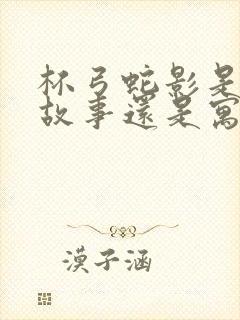 杯弓蛇影是
故事還是寓
漠子涵